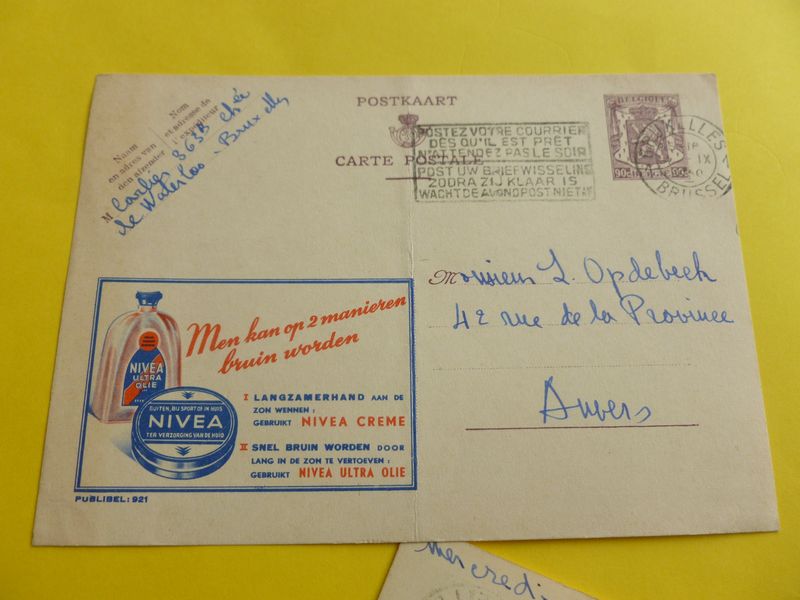 POSTKAART
CARTE POSTALE
BELGIQUE
90c BELGIE 90c
POSTEZ VOTRE COURRIER
DES QU'IL EST PRÊT
N'ATTENDEZ PAS LE SOIR
POST UW BRIEFWISSELING
ZODRA ZIJ KLAAR IS
WACHT DE AVONDPOST NIET AF
IX
BRUSSEL
Nom
et adresse de
l'expéditeur
Naam
en adres van
den afzender
M Carlier 363B Chée
de Waterloo - Bruxelles
Monsieur L. Opdebeeck
42 rue de la Province
Anvers
Men kan op 2 manieren
bruin worden
NIVEA
ULTRA
OLIE
BUITEN, BIJ SPORT OF IN HUIS
NIVEA
TER VERZORGING VAN DE HUID
I LANGZAMERHAND AAN DE
ZON WENNEN:
GEBRUIKT NIVEA CREME
II SNEL BRUIN WORDEN DOOR
LANG IN DE ZON TE VERTOEVEN:
GEBRUIKT NIVEA ULTRA OLIE
PUBLIBEL: 921
mercredi